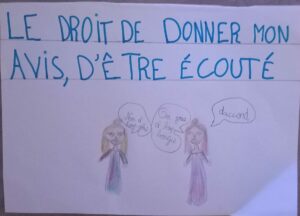 LE DROIT DE DONNER MON
AVIS, D'ÊTRE ÉCOUTÉ
d'accord